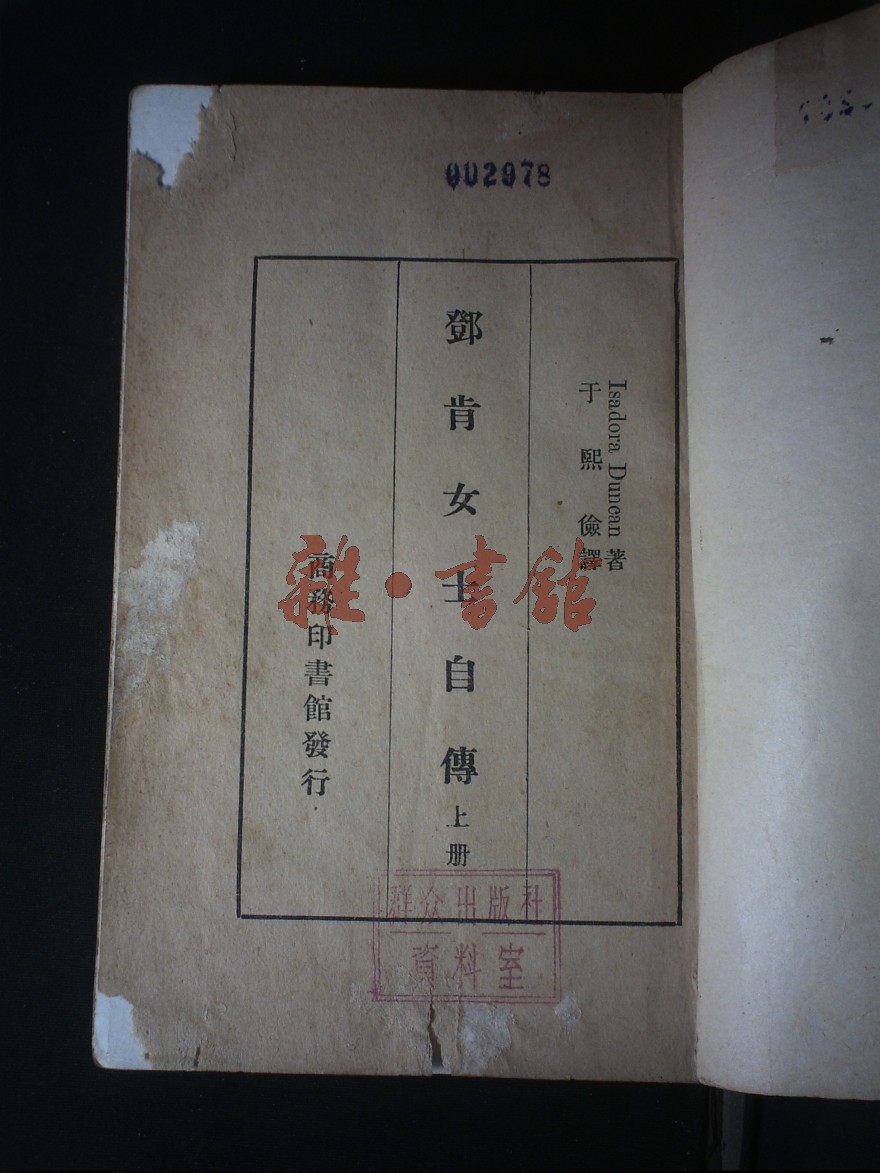 002978
Isadora Duncan 著
于熙儉譯
鄧肯女士自傳 上册
商務印書館發行
雜·書館
群众出版社
資料室